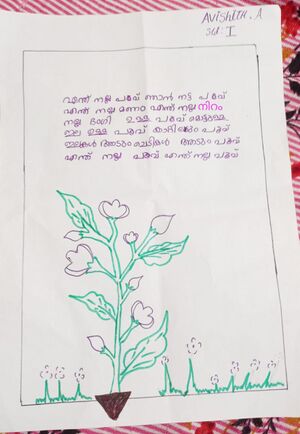 AVISHITH. A
Std. I
എന്ത് നല്ല പൂവ് ഞാൻ നട്ട പൂവ്
എന്ത് നല്ല മണം എന്ത് നല്ല നിറം
നല്ല ഭംഗി ഉള്ള പൂവ്
ഇല ഉള്ള പൂവ് പൂവ്
ഇലകൾ ആടും ചെടികൾ ആടും പൂവ്
എന്ത് നല്ല പൂവ് എന്ത് നല്ല പൂവ്